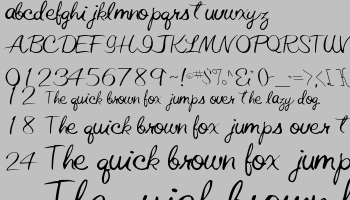 abcdefghijklmnopqrstuvwxyz
ABCDEFGHIJKLMNOPQRSTUV
0123456789
12 The quick brown fox jumps over the lazy dog
18 The quick brown fox jumps over t
24 The quick brown fox jump